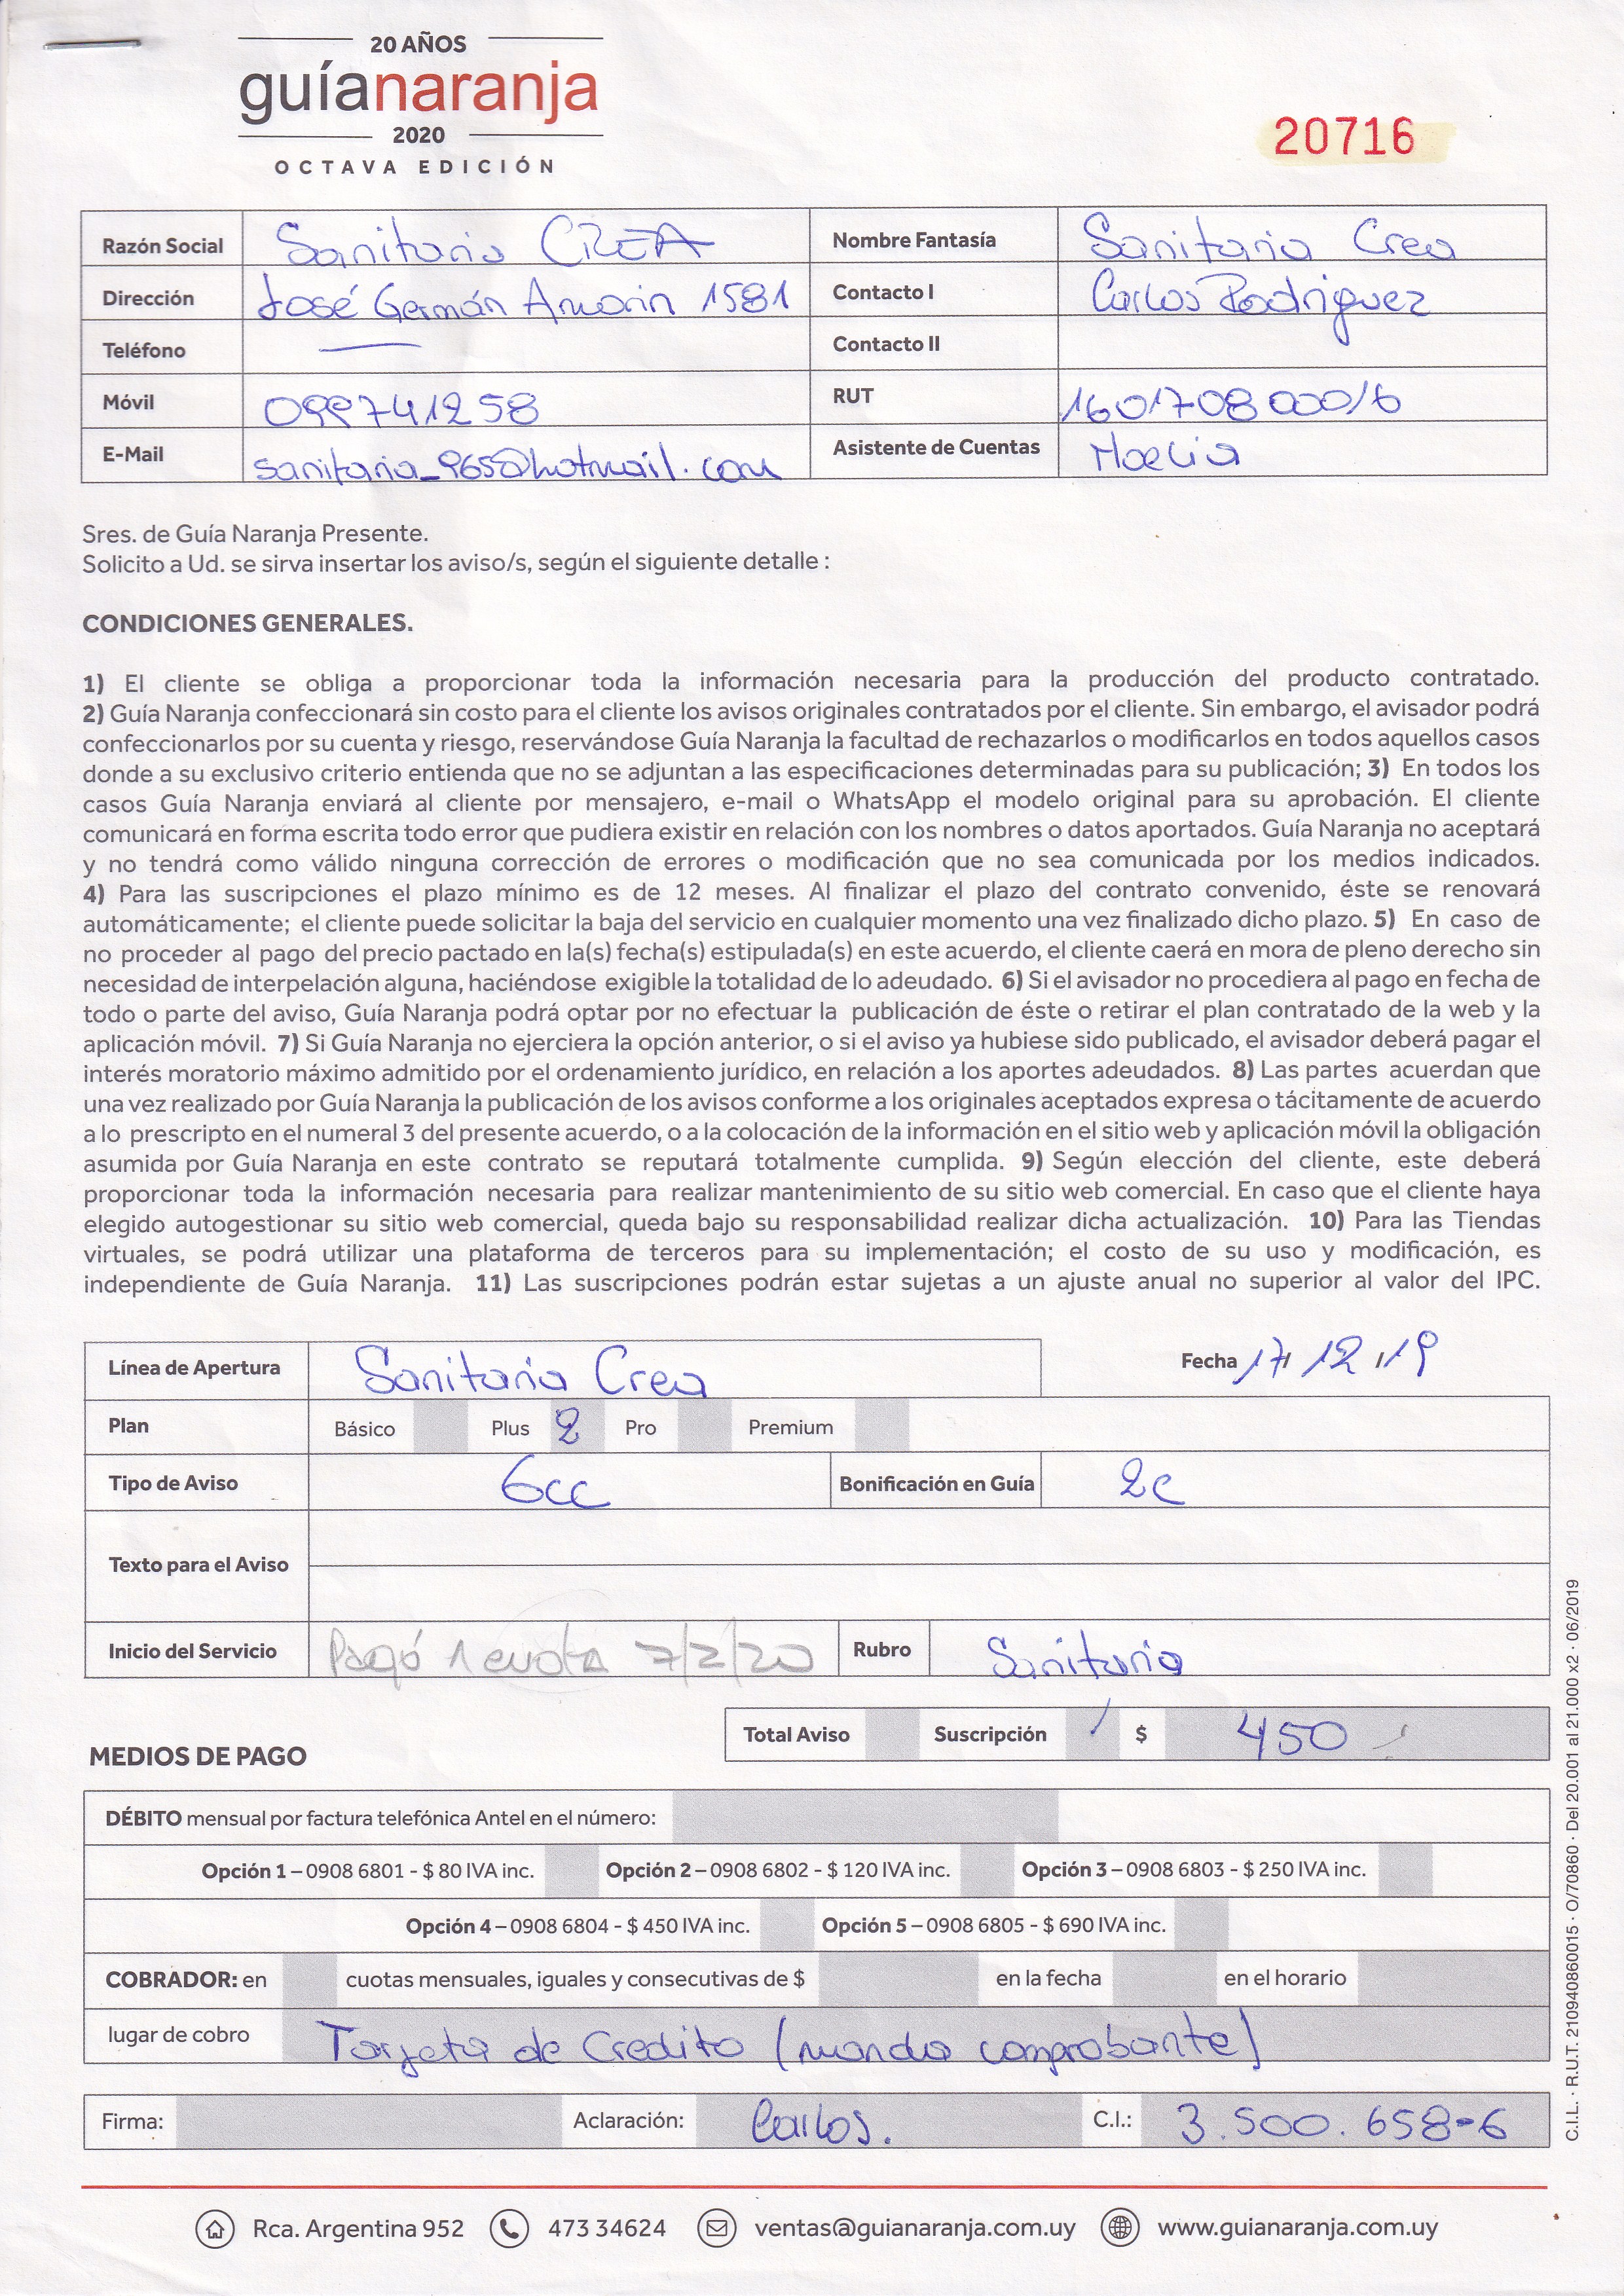 20 AÑOS
guíanaranja
2020
OCTAVA EDICIÓN
20716
Razón Social Sanitaria CREA Nombre Fantasía Sanitaria Crea
Dirección José Germán Amorin 1581 Contacto I Carlos Rodriguez
Teléfono — Contacto II
Móvil 099741258 RUT 160170800016
E-Mail sanitaria_965@hotmail.com Asistente de Cuentas Noelia
Sres. de Guía Naranja Presente.
Solicito a Ud. se sirva insertar los aviso/s, según el siguiente detalle :
CONDICIONES GENERALES.
1) El cliente se obliga a proporcionar toda la información necesaria para la producción del producto contratado.
2) Guía Naranja confeccionará sin costo para el cliente los avisos originales contratados por el cliente. Sin embargo, el avisador podrá
confeccionarlos por su cuenta y riesgo, reservándose Guía Naranja la facultad de rechazarlos o modificarlos en todos aquellos casos
donde a su exclusivo criterio entienda que no se adjuntan a las especificaciones determinadas para su publicación; 3) En todos los
casos Guía Naranja enviará al cliente por mensajero, e-mail o WhatsApp el modelo original para su aprobación. El cliente
comunicará en forma escrita todo error que pudiera existir en relación con los nombres o datos aportados. Guía Naranja no aceptará
y no tendrá como válido ninguna corrección de errores o modificación que no sea comunicada por los medios indicados.
4) Para las suscripciones el plazo mínimo es de 12 meses. Al finalizar el plazo del contrato convenido, éste se renovará
automáticamente; el cliente puede solicitar la baja del servicio en cualquier momento una vez finalizado dicho plazo. 5) En caso de
no proceder al pago del precio pactado en la(s) fecha(s) estipulada(s) en este acuerdo, el cliente caerá en mora de pleno derecho sin
necesidad de interpelación alguna, haciéndose exigible la totalidad de lo adeudado. 6) Si el avisador no procediera al pago en fecha de
todo o parte del aviso, Guía Naranja podrá optar por no efectuar la publicación de éste o retirar el plan contratado de la web y la
aplicación móvil. 7) Si Guía Naranja no ejerciera la opción anterior, o si el aviso ya hubiese sido publicado, el avisador deberá pagar el
interés moratorio máximo admitido por el ordenamiento jurídico, en relación a los aportes adeudados. 8) Las partes acuerdan que
una vez realizado por Guía Naranja la publicación de los avisos conforme a los originales aceptados expresa o tácitamente de acuerdo
a lo prescripto en el numeral 3 del presente acuerdo, o a la colocación de la información en el sitio web y aplicación móvil la obligación
asumida por Guía Naranja en este contrato se reputará totalmente cumplida. 9) Según elección del cliente, este deberá
proporcionar toda la información necesaria para realizar mantenimiento de su sitio web comercial. En caso que el cliente haya
elegido autogestionar su sitio web comercial, queda bajo su responsabilidad realizar dicha actualización. 10) Para las Tiendas
virtuales, se podrá utilizar una plataforma de terceros para su implementación; el costo de su uso y modificación, es
independiente de Guía Naranja. 11) Las suscripciones podrán estar sujetas a un ajuste anual no superior al valor del IPC.
Línea de Apertura Sanitaria Crea Fecha 17/ 12 /19
Plan Básico Plus 2 Pro Premium
Tipo de Aviso 6cc Bonificación en Guía 2c
Texto para el Aviso
Inicio del Servicio Pagó 1 cuota 7/2/20 Rubro Sanitaria
Total Aviso Suscripción / $ 450
MEDIOS DE PAGO
DÉBITO mensual por factura telefónica Antel en el número:
Opción 1 – 0908 6801 - $ 80 IVA inc. Opción 2 – 0908 6802 - $ 120 IVA inc. Opción 3 – 0908 6803 - $ 250 IVA inc.
Opción 4 – 0908 6804 - $ 450 IVA inc. Opción 5 – 0908 6805 - $ 690 IVA inc.
COBRADOR: en cuotas mensuales, iguales y consecutivas de $ en la fecha en el horario
lugar de cobro Tarjeta de Credito (mando comprobante)
Firma: Aclaración: Carlos. C.I.: 3.500.658-6
C.I.L. · R.U.T. 210940860015 · O/70860 · Del 20.001 al 21.000 x2 · 06/2019
Rca. Argentina 952 473 34624 ventas@guianaranja.com.uy www.guianaranja.com.uy